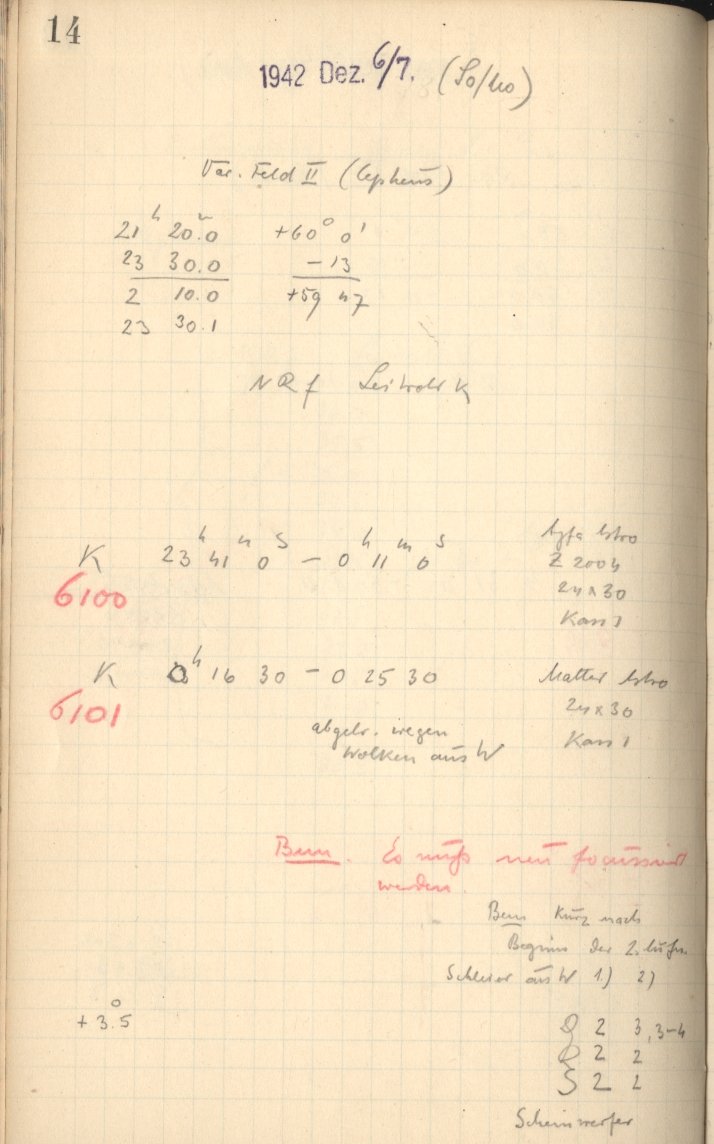 14
1942 Dez. 6/7. (So/Mo)
Var. Feld II (Cepheus)
21ʰ 20ᵐ.0 +60° 0'
23 30.0 -13
2 10.0 +59 47
23 30.1
f
K 23ʰ 41ᵐ 0ˢ - 0ʰ 11ᵐ 0ˢ
6100
Agfa Astro
Z 2004
24x30
Kass 1
K 0ʰ 16 30 - 0 25 30
6101
Matter Astro
24x30
Kass 1
abgebr. wegen
Wolken aus W
Bem. Es muß neu focussiert
werden
Bem Kurz nach
Beginn der 2. Aufn.
Schleier aus W 1) 2)
+3°.5
2 3, 3-4
2 2
S 2 2
Scheinwerfer